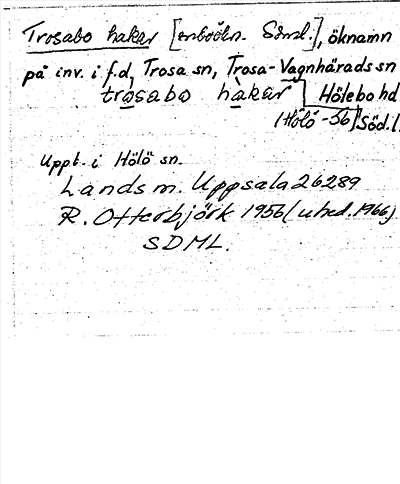 Trosabo hakar [enboöln. Sörml.], öknamn
på inv. i f.d. Trosa sn, Trosa-Vagnhärads sn
trosabo hakar Hölebo hd
(Hölö -56) Söd.l.
Uppt. i Hölö sn.
Landsm. Uppsala 26289
R. Otterbjörk 1956 (uhed. 1966)
SDML.